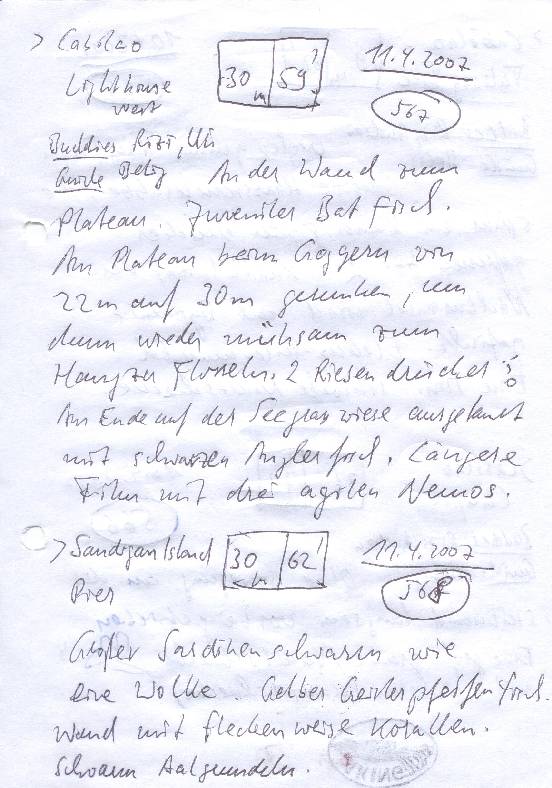 > Cabilao
30 m 59'
11.4.2007
Lighthouse
west
567
Buddies Rizi, Ulli
Guide Betiz An der Wand zum
Plateau. Juveniler Bat Fisch.
Am Plateau beim Goggern von
22m auf 30m gesunken, um
dann wieder mühsam zum
Hang zu Flosseln. 2 Riesendrücker!
Am Ende auf der Seegraswiese ausgetaucht
mit schwarzen Anglerfisch. Längere
Film mit drei agilen Nemos.
> Sandigan Island
30 m 62'
11.4.2007
Pier
568
Großer Sardinenschwarm wie
eine Wolke. Gelber Geisterpfeifenfisch.
Wand mit fleckenweise Korallen.
Schwarm Aalgrundeln.